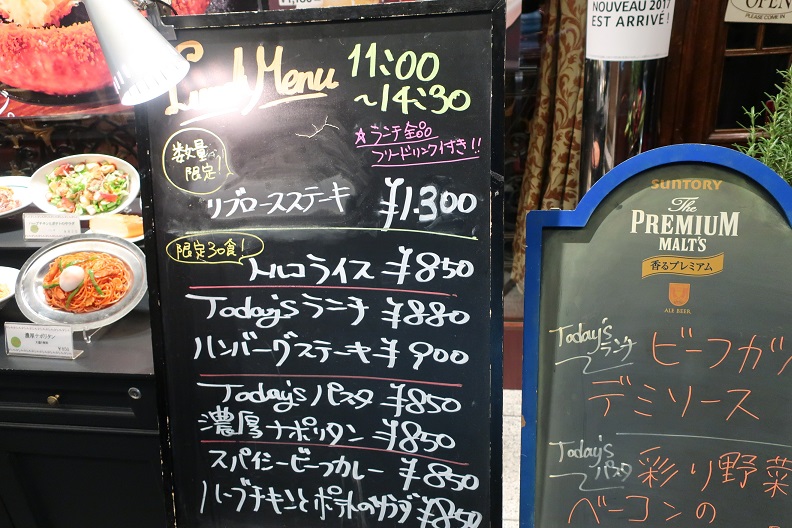 Lunch Menu
11:00
~14:30
☆ランチ全品
フリードリンク付き!!
数量が
限定!
リブロースステーキ ¥1.300
限定30食!
トルコライス ¥850
Today'sランチ ¥880
ハンバーグステーキ ¥900
Today'sパスタ ¥850
濃厚ナポリタン ¥850
スパイシービーフカレー ¥850
ハーブチキンとポテトのサラダ ¥850
濃厚ナポリタン
NOUVEAU 2017
EST ARRIVÉ !
OPEN
PLEASE COME IN
SUNTORY
The
PREMIUM
MALT'S
香るプレミアム
ALE BEER
Today's
ランチ
ビーフカツ
デミソース
Today's
パスタ
彩り野菜
ベーコンの